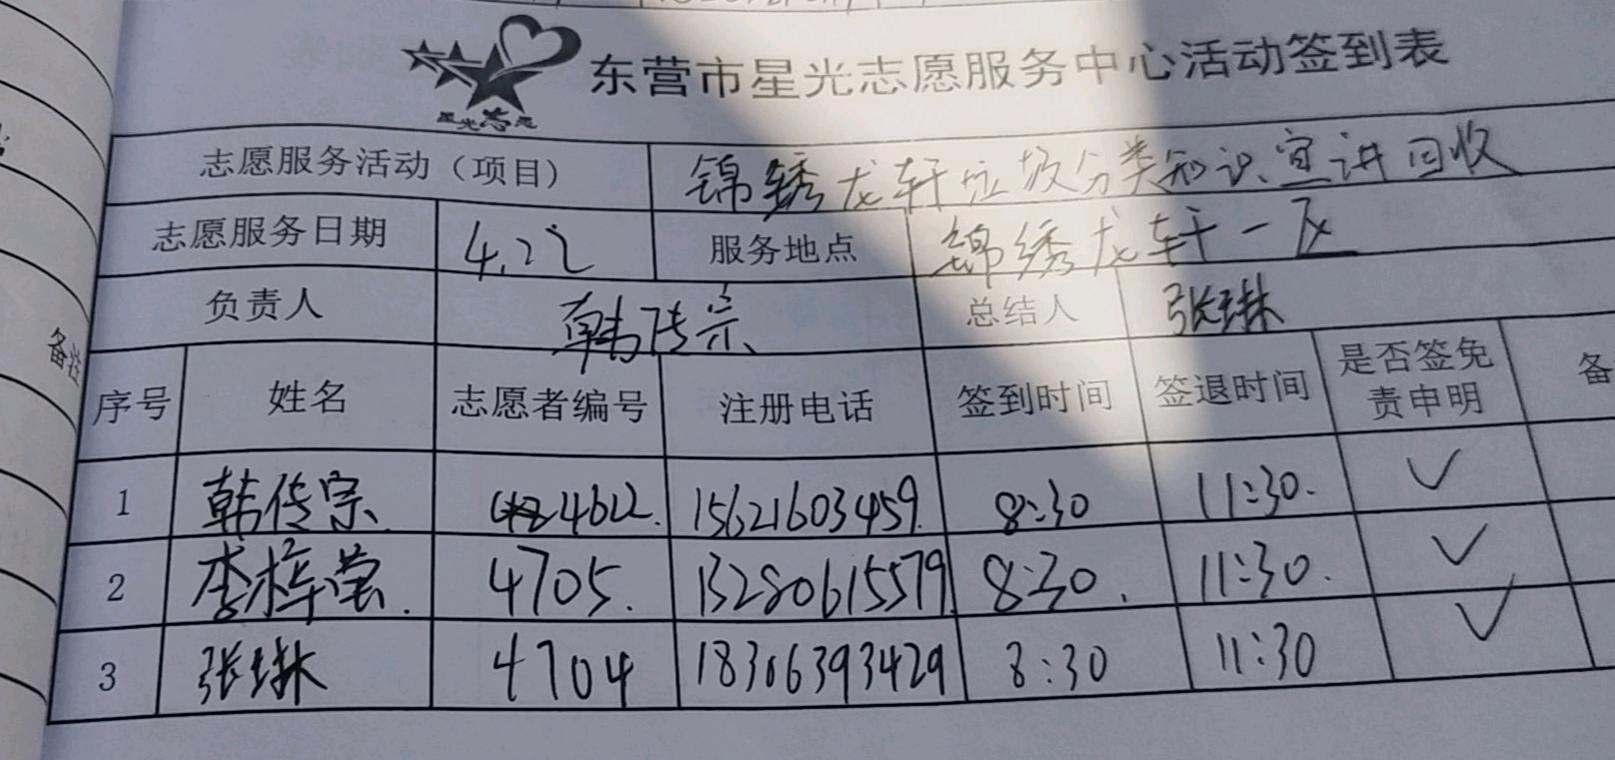 东营市星光志愿服务中心活动签到表
星光志愿
志愿服务活动（项目） 锦绣龙轩垃圾分类知识宣讲回收
志愿服务日期 4.22 服务地点 锦绣龙轩一区
负责人 韩传宗 总结人 张琳
序号 姓名 志愿者编号 注册电话 签到时间 签退时间 是否签免责申明 备
备注
1 韩传宗 4622. 15621603459. 8:30 11:30. ✓
2 李梓莹. 4705. 13280615579. 8:30. 11:30. ✓
3 张琳 4704 18306393429 8:30 11:30 ✓